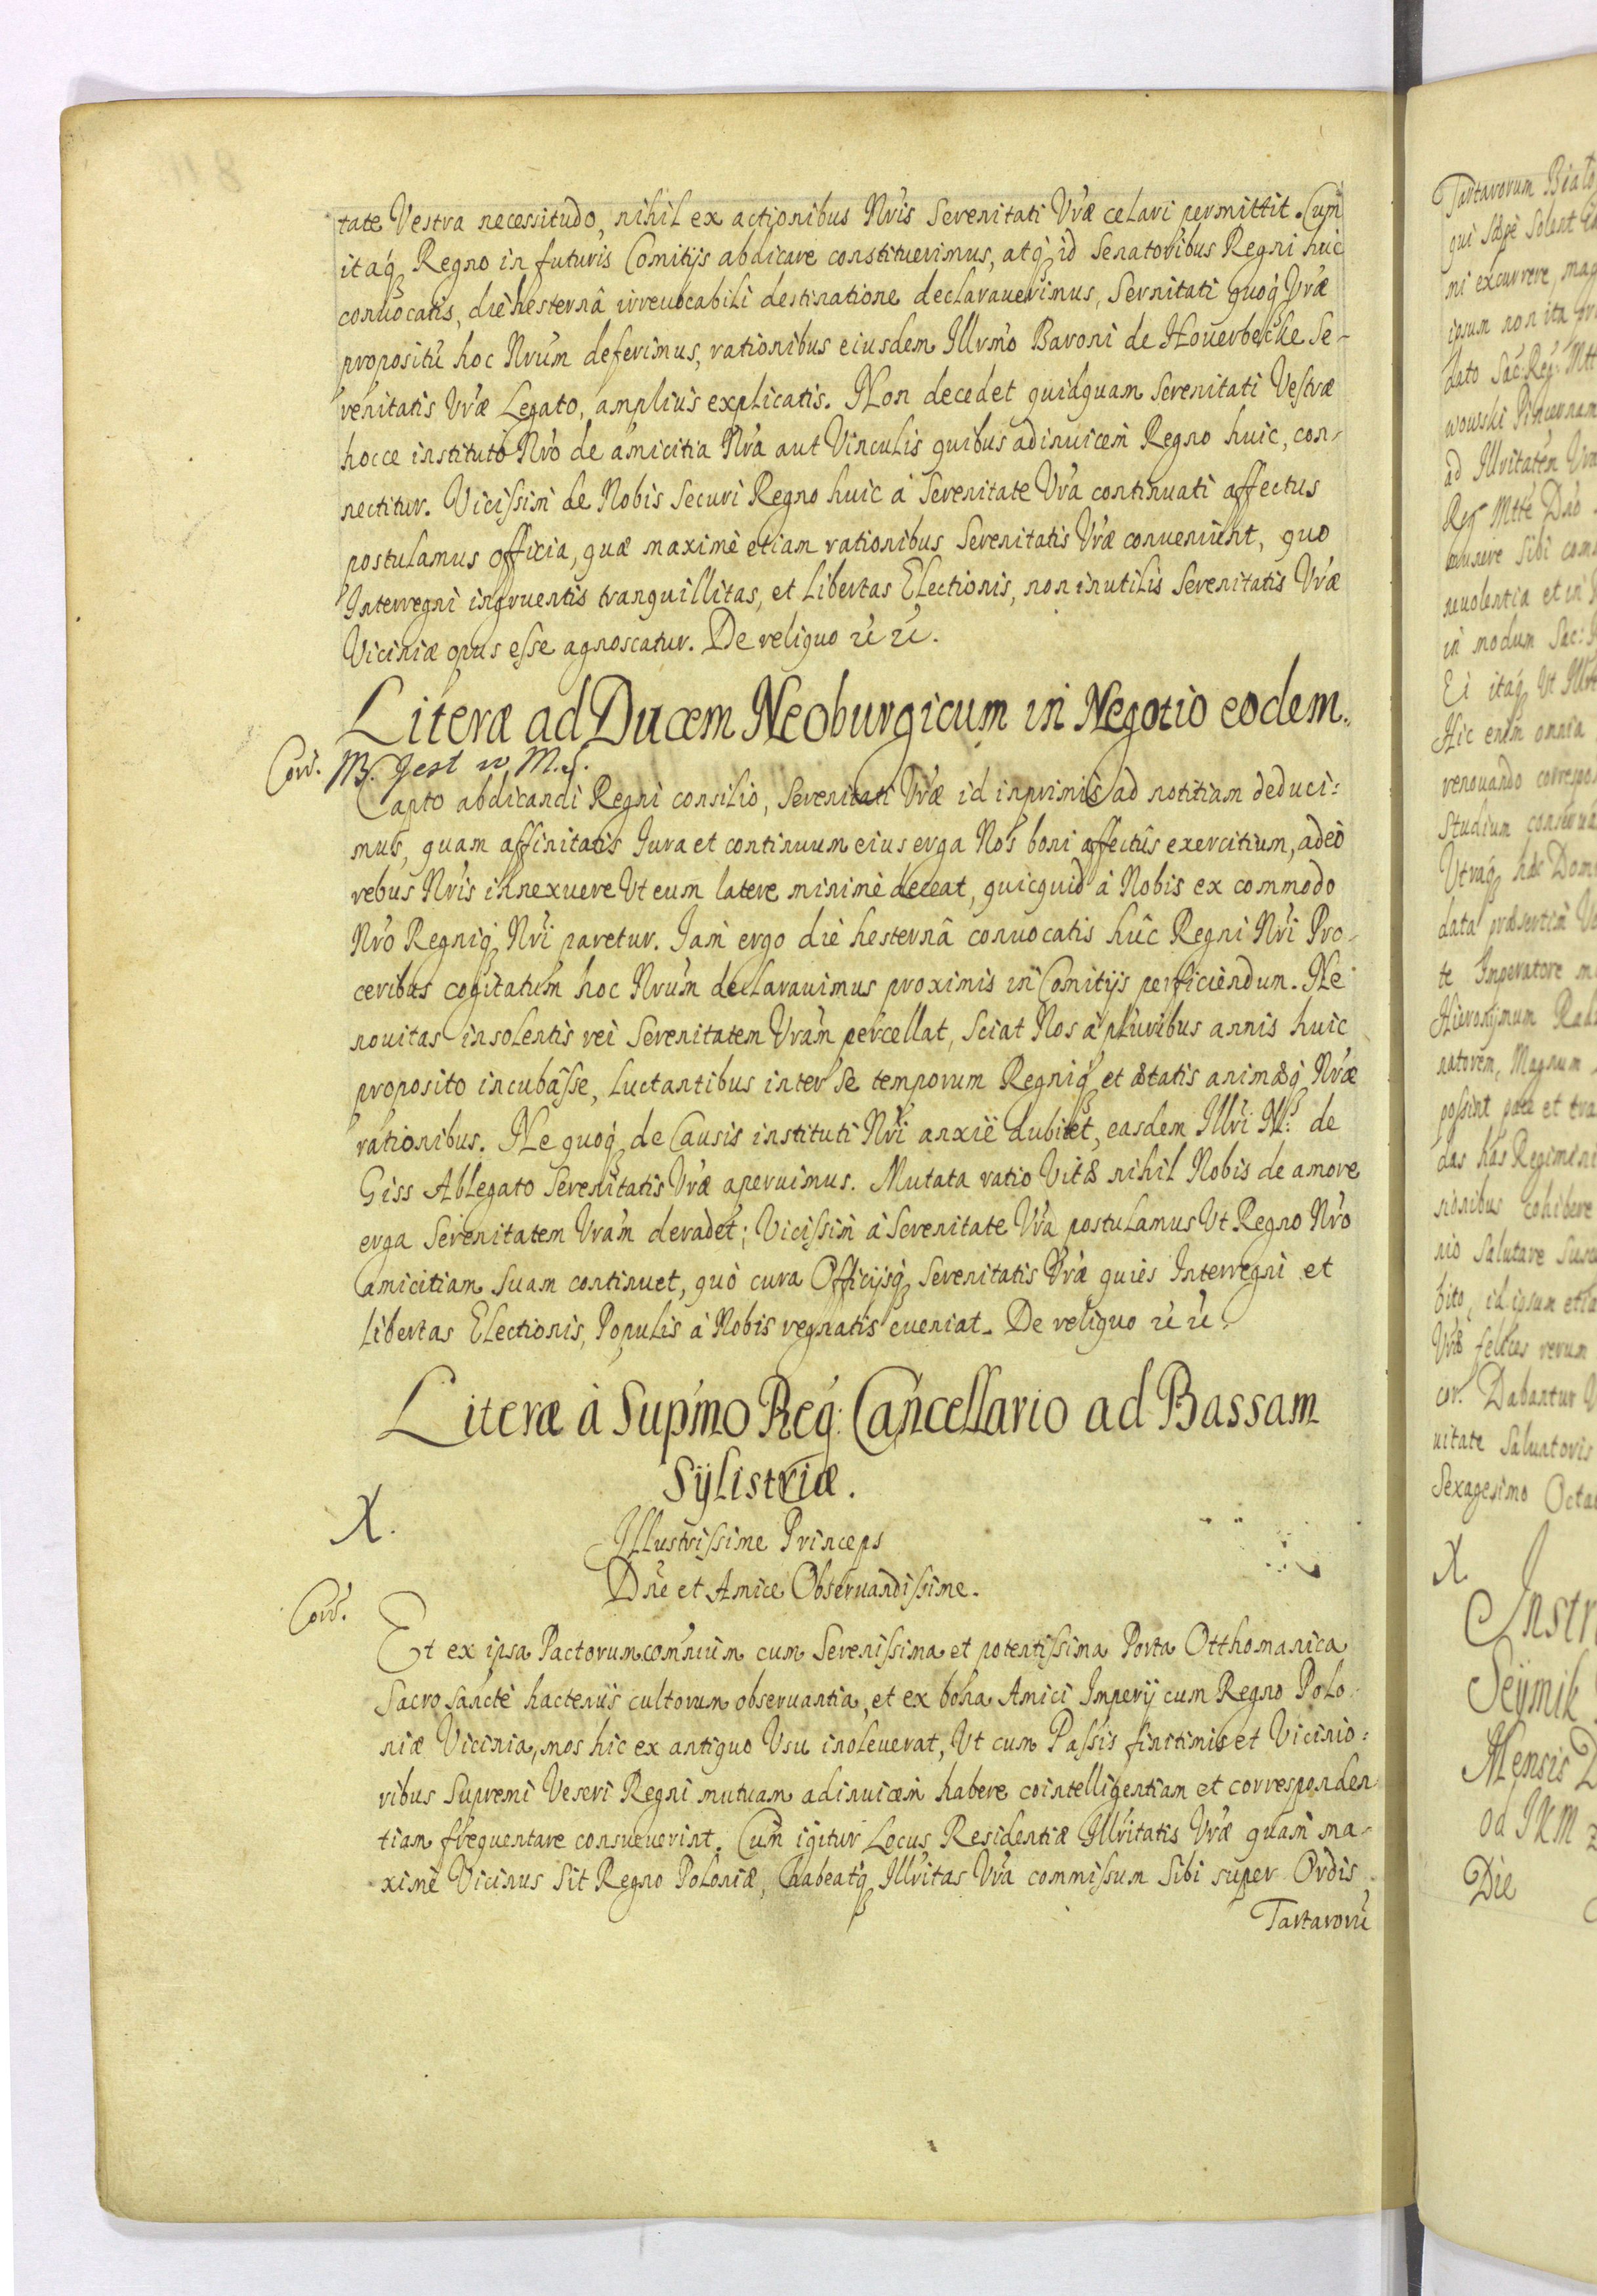 tate Vestra necessitudo, nihil ex actionibus Nris Serenitati Vræ celari permittit. Cum
itaq Regno in futuris Comitijs abdicare constituerimus, atq id Senatoribus Regni huc
conuocatis, die hesternâ irreuocabili destinatione declarauerimus, Sernitati quoq Vræ
propositũ hoc Nrum deferimus, rationibus eiusdem Illrmo Baroni de Houerbecke Se-
renitatis Vræ Legato, amplius explicatis. Non decedet quidquam Serenitati Vestræ
hocce instituto Nro de amicitia Nra aut Vinculis quibus adinuicem Regno huic, con-
nectitur. Vicissim de Nobis Securi Regno huic à Serenitate Vra continuati affectus
postulamus officia, quæ maximè etiam rationibus Serenitatis Vræ conueniunt, quo
Interregni ingruentis tranquillitas, et libertas Electionis, non inutilis Serenitatis Vræ
Viciniæ opus esse agnoscatur. De reliquo
Literæ ad Ducem Neoburgicum in Negotio eodem.
Corr. NB. Jest w M.S.
Capto abdicandi Regni consilio, Serenitati Vræ id inprimis ad notitiam deduci:
mus, quam affinitatis Jura et continuum eius erga Nos boni affectûs exercitium, adeò
rebus Nris innexuere Vt eum latere minimè deceat, quicquid à Nobis ex commodo
Nro Regniq Nri paretur. Jam ergo die hesternâ conuocatis hûc Regni Nri Pro-
ceribus cogitatum hoc Nrum declarauimus proximis in Comitijs perficiendum. Ne
nouitas insolentis rei Serenitatem Vram percellat, Sciat Nos à pluribus annis huic
proposito incubasse, Luctantibus inter Se temporum Regniq et ætatis animæq Nræ
rationibus. Ne quoq de Causis instituti Nri anxiè dubitet, easdem Illri de
Giss Ablegato Serenitatis Vræ aperuimus. Mutata ratio Vitæ nihil Nobis de amore
erga Serenitatem Vram deradet; Vicissim à Serenitate Vra postulamus Vt Regno Nro
amicitiam Suam continuet, quò cura Officijsq Serenitatis Vræ quies Interregni et
libertas Electionis, Populis à Nobis regnatis eueniat. De reliquo
Literæ à Supmo Reg: Cancellario ad Bassam
Sÿlistriæ.
X.
Illustrissime Princeps
Dne et Amice Obseruandissime.
Corr.
Et ex ipsa Pactorum comnium cum Serenissima et potentissima Porta Otthomanica
Sacro Sanctè hactenùs cultorum obseruantia, et ex bona Amici Imperij cum Regno Polo:
niæ Vicinia, mos hic ex antiquo Vsu inoleuerat, Vt cum Passis finitimis et Vicinio:
ribus Supremi Veseri Regni mutuam adinuicem habere cointelligentiam et corresponden
tiam frequentare consueuerint. Cum igitur Locus Residentiæ Illritatis Vræ quam ma-
ximè Vicinus Sit Regno Poloniæ, habeatq Illritas Vra commissum Sibi super Ordis
Tartarorũ
Tartarorum
qui Sæpè Solent
ni excurrere, mag
ipsum non ita
dato Sac: Reg: Mtt
wowski Pincernam
ad Illritatem Vra
Reg Mtte Dno
neuolentia et in
in modum Sac:
Ei itaq Vt Illrit
Hic enim omnia
renouando correspo
Studium conserua
Vtraq hæc Dom
data præsertim
te Imperatore m
Hieronymum
natorem, Magnum
possint pace et tra
das has Regimini
sionibus cohibere
nio Salutare
bito, id ipsum etia
Vræ felices rerum
cor. Dabantur
uitate Saluatoris
Sexagesimo Octa
X
Instr
Seÿmik
Mensis
od JKM
Die